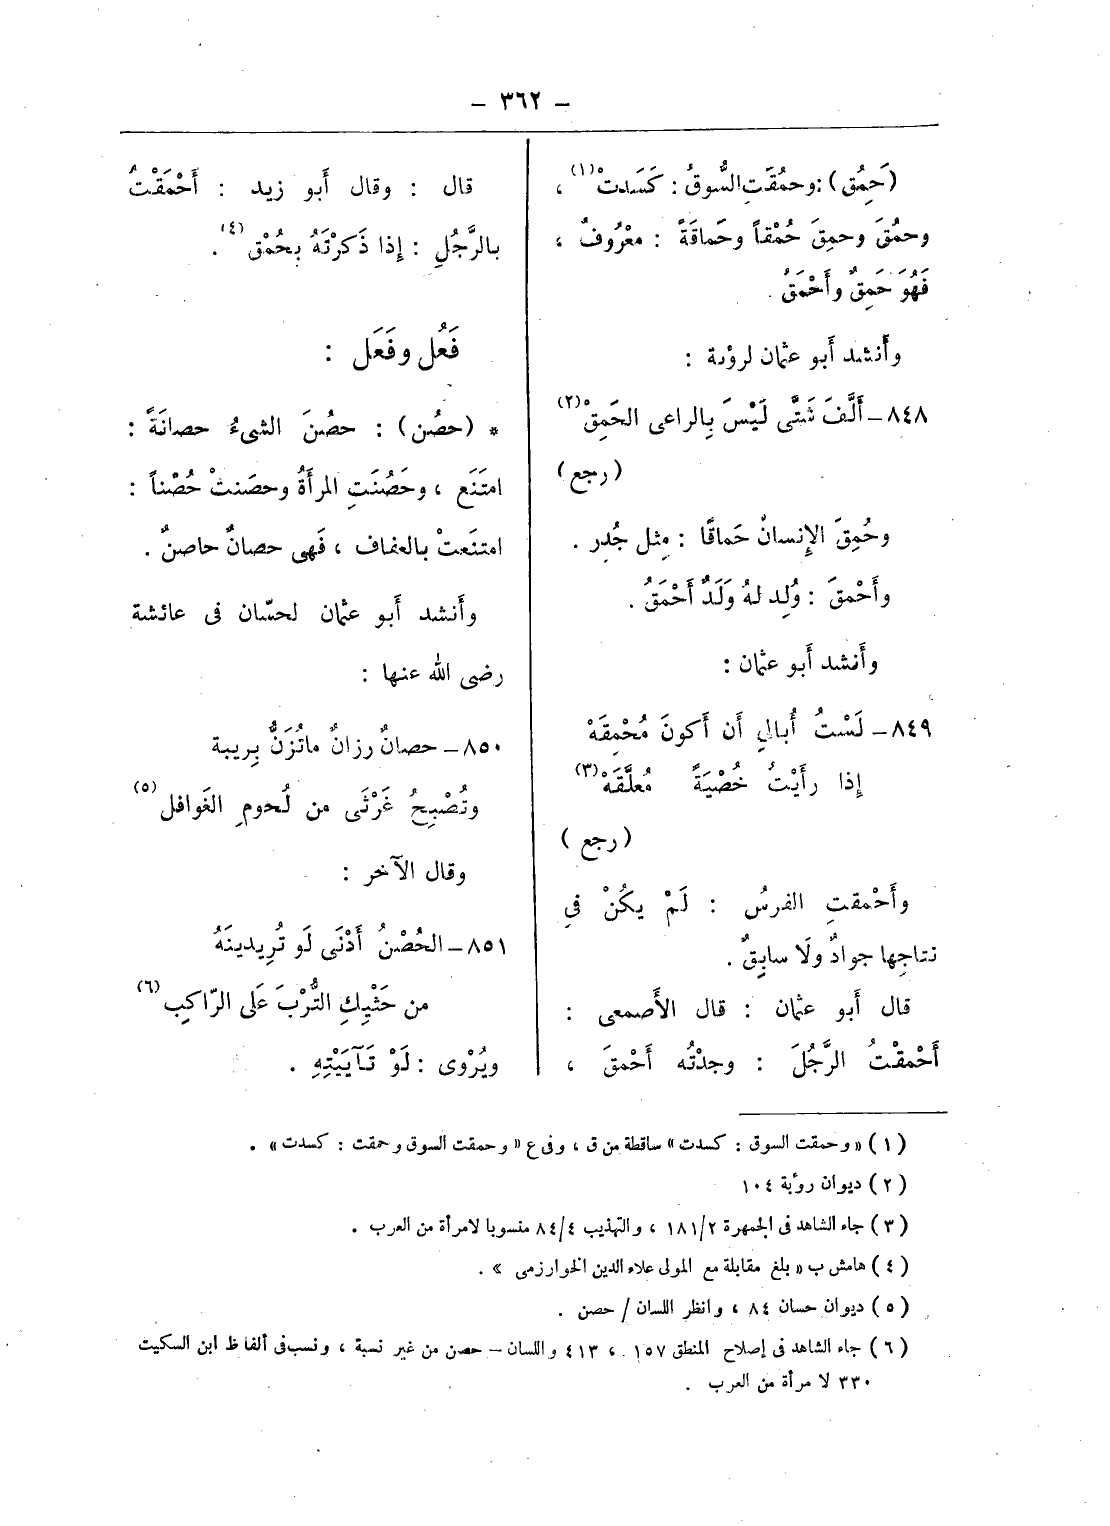 – ٣٦٢ –
(حَمُق) : وحمُقَتِ السُّوقُ : كَسَدتْ (١) ،
وحمُقَ وحمِقَ حُمْقاً وحَماقَةً : معْرُوفٌ ،
فَهُوَ حَمِقٌ وأَحْمَقُ .
وأنشد أَبو عثمان لرؤبة :
٨٤٨ – أَلَّفَ شَتَّى لَيْسَ بِالراعى الحَمِقْ (٢)
( رجع )
وحُمِقَ الإِنسانُ حَماقًا : مِثل جُدِر .
وأَحْمقَ : وُلِد لهُ وَلَدٌ أَحْمَقُ .
وأَنشد أَبو عثمان :
٨٤٩ – لَسْتُ أُبالِى أَن أَكونَ مُحْمِقَهْ
إِذا رأَيْتُ خُصْيَةً مُعلَّقَهْ (٣)
( رجع )
وأَحْمقتِ الفرسُ : لَمْ يكُنْ فى
نتاجِها جوادٌ ولَا سابِقٌ .
قال أَبو عثمان : قال الأَصمعى :
أَحْمقْتُ الرَّجُلَ : وجدْتُه أَحْمقَ ،
قال : وقال أَبو زيد : أَحْمَقْتُ
بالرَّجُلِ : إِذا ذَكرْتَهُ بحُمْق (٤) .
فَعُل وفَعَل :
* (حصُن) : حصُنَ الشىءُ حصانَةً :
امتَنَع ، وحَصُنَتِ المرأَةُ وحصَنتْ حُصْناً :
امتنَعتْ بالعفاف ، فَهى حصانٌ حاصنٌ .
وأَنشد أَبو عثمان لحسّان فى عائشة
رضى الله عنها :
٨٥٠ – حصانٌ رزانٌ ماتُزَنُّ بِريبة
وتُصْبِحُ غَرْثَى من لُحومِ الغَوافل (٥)
وقال الآخر :
٨٥١ – الحُصْنُ أَدْنَى لَو تُرِيدينَهُ
من حَثْيِكِ التُّرْبَ عَلى الرّاكبِ (٦)
ويُرْوى : لَوْ تَآيَيْتِهِ .
(١) « وحمقت السوق : كسدت » ساقطة من ق ، وفى ع « وحمقت السوق وحمقت : كسدت » .
(٢) ديوان رؤبة ١٠٤
(٣) جاء الشاهد فى الجمهرة ١٨١/٢ ، والتهذيب ٨٤/٤ منسوبا لامرأة من العرب .
(٤) هامش ب « بلغ مقابلة مع المولى علاء الدين الخوارزمى » .
(٥) ديوان حسان ٨٤ ، وانظر اللسان / حصن .
(٦) جاء الشاهد فى إصلاح المنطق ١٥٧ ، ٤١٣ واللسان – حصن من غير نسبة ، ونسب فى ألفاظ ابن السكيت
٣٣٠ لامرأة من العرب .